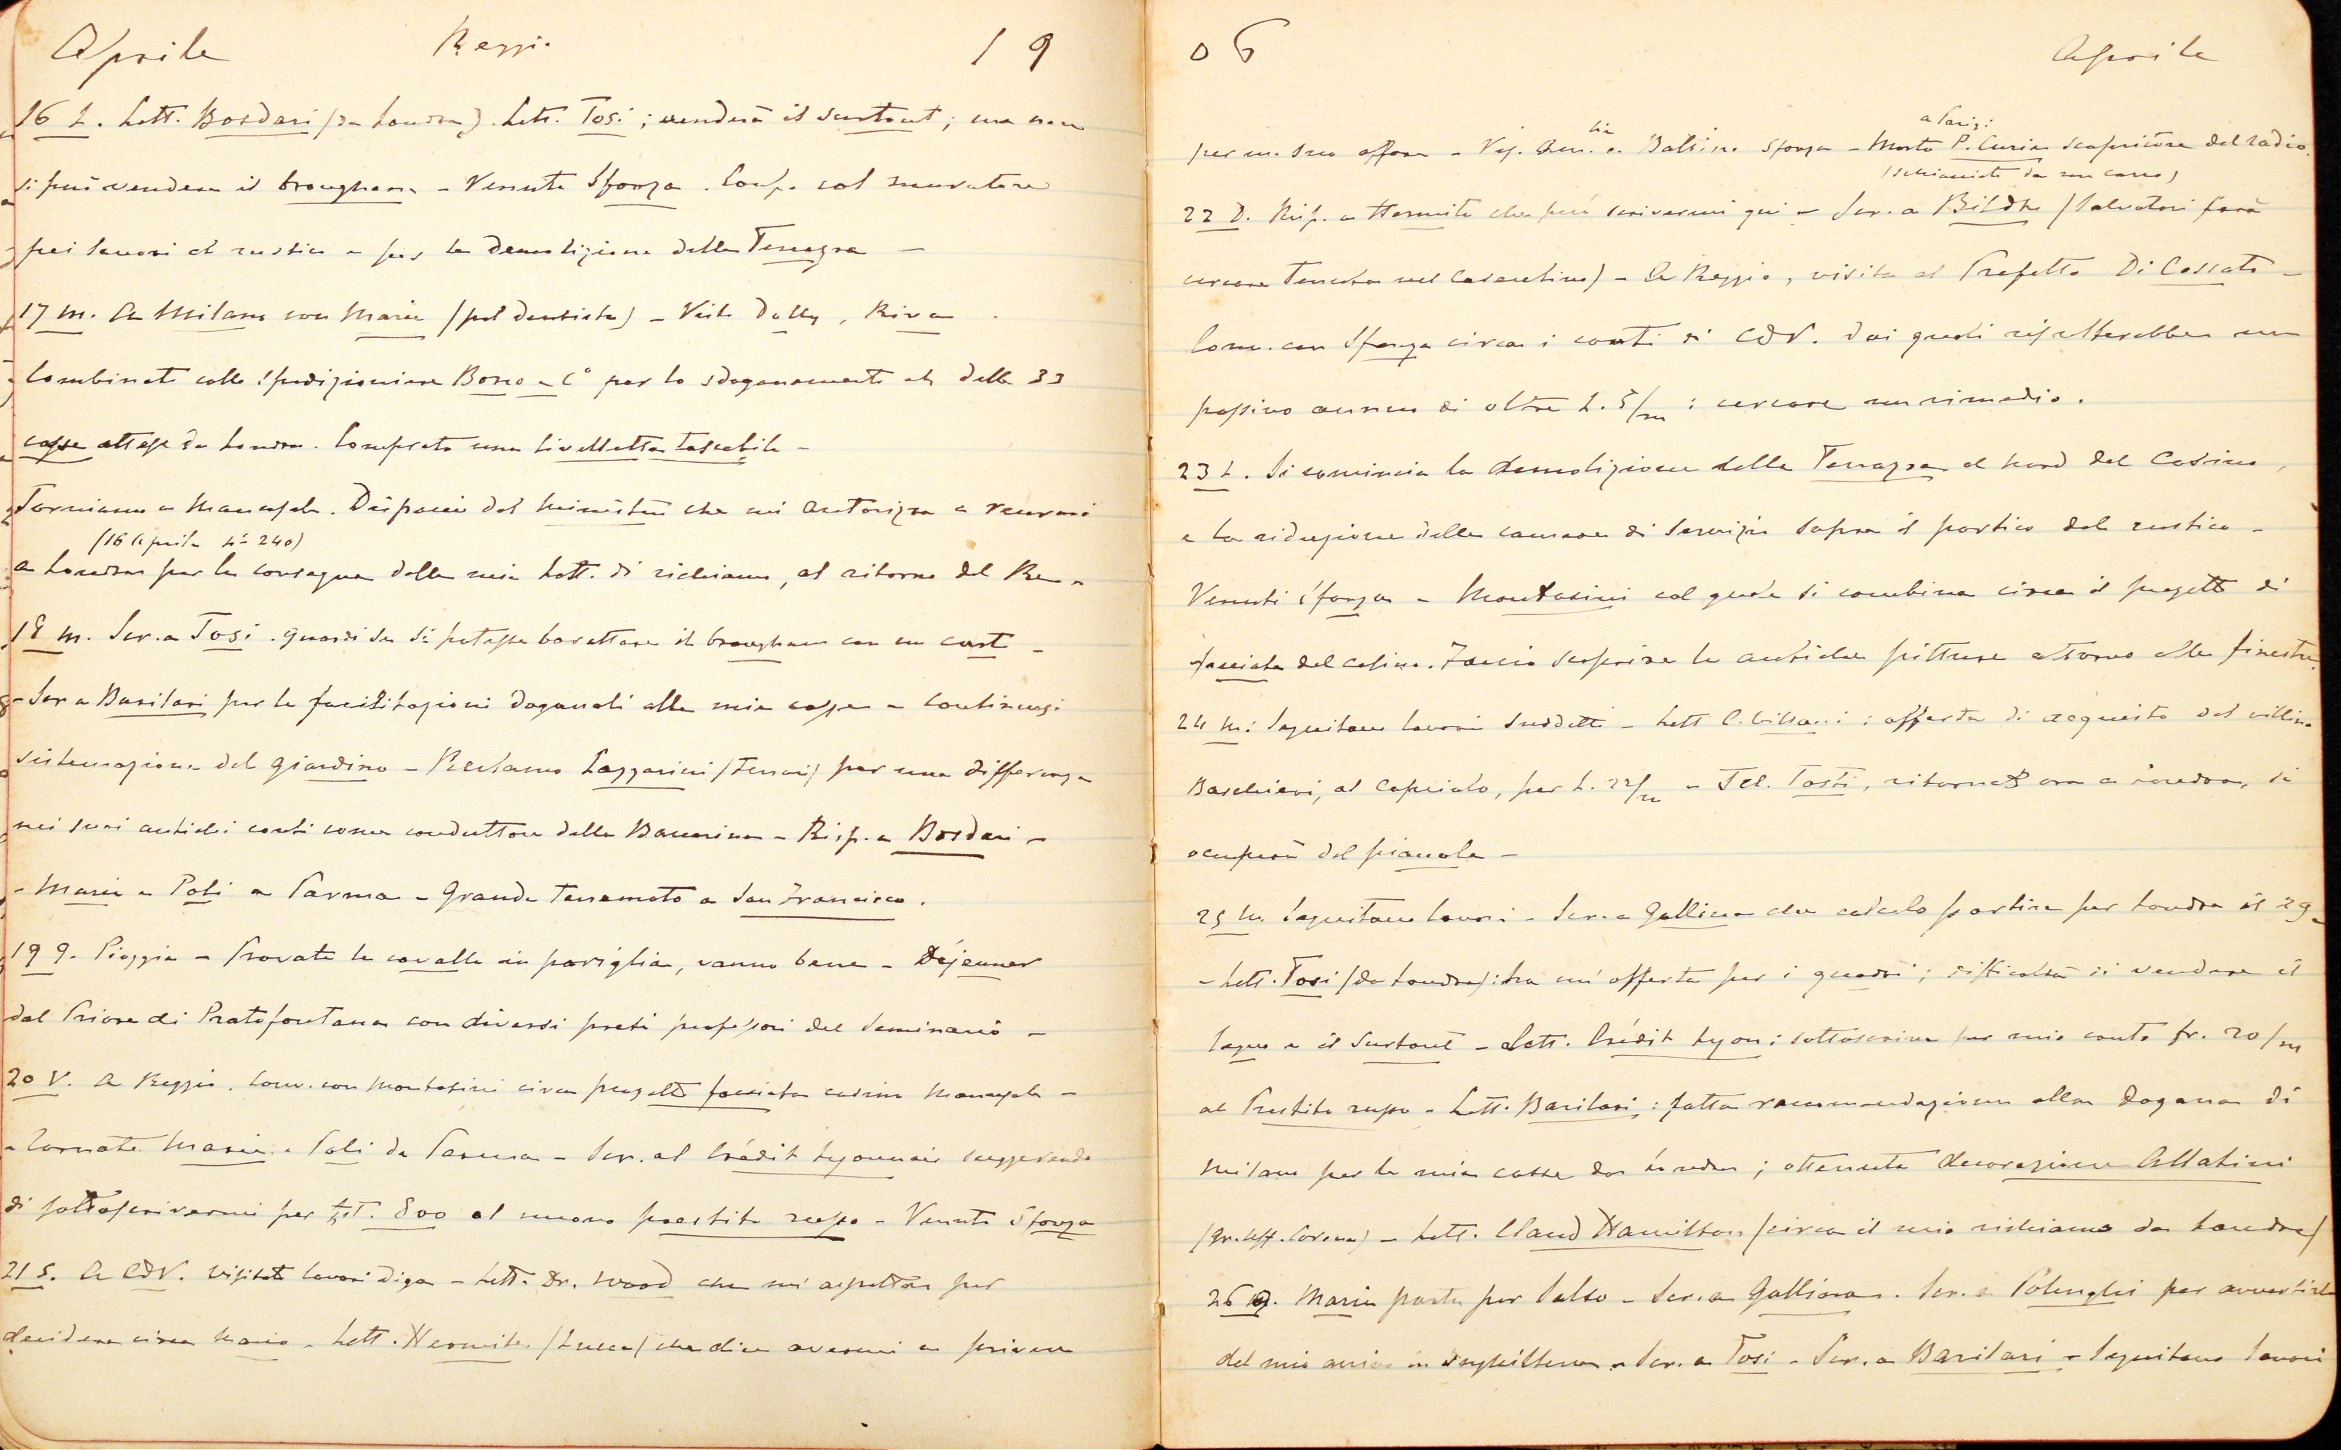 Aprile Reggio 19
16 L. Lett. Bosdari (da Londra). Lett. Tosi; venderà il surtout; ma non
si può vendere il brougham - Venuto Sforza. Comb. col muratore
pei lavori al rustico e per la demolizione della Terrazza -
17 M. A Milano con Maria (pel dentista) - Visto Dally, Riva.
Combinato collo spedizioniere Bono e C° per lo sdoganamento etc delle 33
casse attese da Londra. Comprato una livelletta tascabile -
Torniamo a Mancasale. Dispaccio del Ministero che mi autorizza a recarmi
(16 Aprile N° 240)
a Londra per la consegna delle mie lett. di richiamo, al ritorno del Re -
18 M. Scr. a Tosi. Guardi se si potesse barattare il brougham con un cart -
- Scr a Barilari per le facilitazioni doganali alle mie casse - Continuasi
sistemazione del giardino - Reclamo Lazzarini per una differenza
nei suoi antichi conti come conduttore della - Risp. a Bosdari -
- Maria e Poli a Parma - Grande terremoto a San Francisco.
19 G. Pioggia - Provate le cavalle in pariglia, vanno bene - Déjeuner
dal Priore di Pratofontana con diversi preti professori del Seminario -
20 V. A Reggio. Conv. con Montasini circa progetto facciata casino Mancasale -
- Tornate Maria e Poli da Parma - Scr. al Crédit Lyonnais suggerendo
di sottoscrivermi per 800 al nuovo prestito russo - Venuto Sforza
21 S. A CDV. Visitati lavori diga - Lett. Dr. Wood che mi aspetta per
decidere circa Mario - Lett. Hermite (Lucca) che dice avermi a scrivere
06 Aprile
a Parigi
per un suo affare - Vis. Balbino Sforza - Morto P. Curie scopritore del radio.
(schiacciato da un carro)
22 D. Risp. a Hermite che può scrivermi qui - Scr. a Bildt (Salvatori farà
cercare Tenuta nel Casentino) - A Reggio, visita al Prefetto Di Cossato -
Conv. con Sforza circa i conti di CDV. dai quali risulterebbe un
passivo annuo di oltre L. 5/m : cercare un rimedio.
23 L. Si comincia la demolizione della Terrazza al nord del Casino,
e la riduzione delle camere di servizio sopra il portico del rustico -
Venuti Sforza - Montasini col quale si combina circa il progetto di
facciata del casino. Faccio scoprire le antiche pitture attorno alle finestre.
24 M: Seguitano lavori suddetti - Lett : offerta di acquisto del villino
Baschieri, al Capriolo, per L. 22/m - Tel. Tosti, ritornato ora a Londra, si
occuperà del pianola -
25 M. Seguitano lavori - Scr. a Gallina che calcolo partire per Londra il 29 -
- Lett. Tosi (da Londra): ha un'offerta per i quadri; difficoltà di vendere il
e il surtout - Lett. Crédit Lyon: sottoscrive per mio conto fr. 20/m
al Prestito russo - Lett. Barilari: fatta raccomandazione alla Dogana di
Milano per le mie casse da Londra; ottenuta decorazione Allatini
(Gr. Uff. Corona) - Lett. Claud Hamilton (circa il mio richiamo da Londra)
26 G. Maria parte per Salso - Scr. a Gallina. Scr. a Polenghi per avvertirlo
del mio arrivo in Inghilterra - Scr. a Tosi - Scr. a Barilari - Seguitano lavori